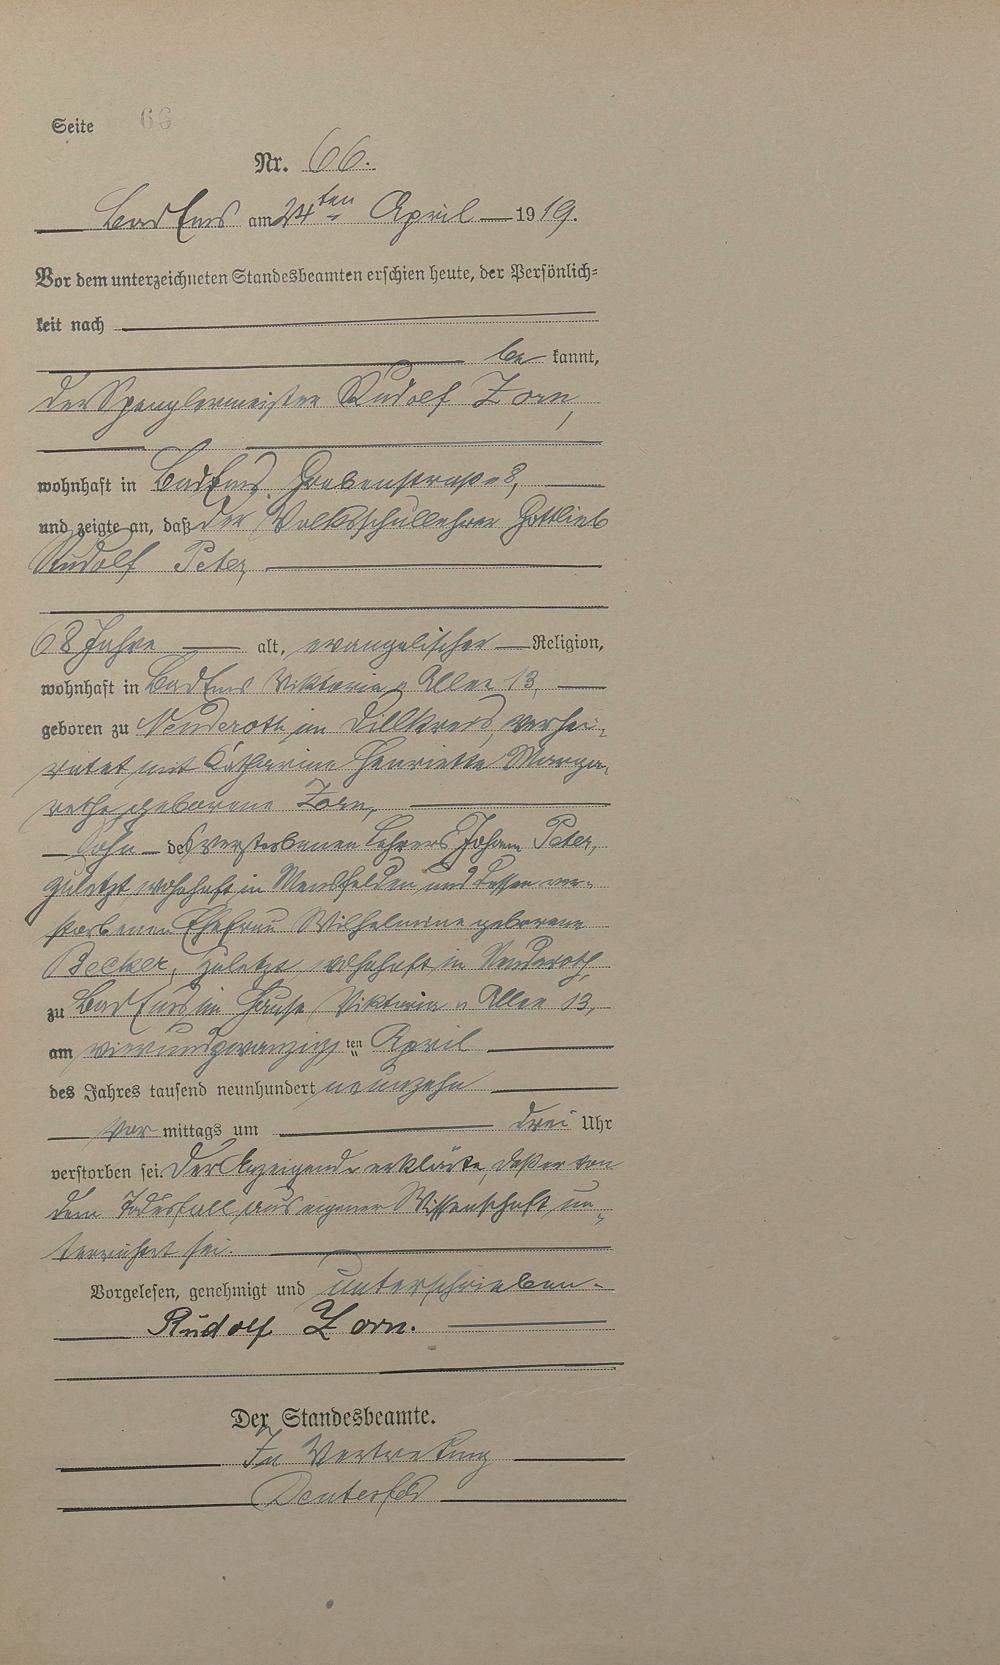 Seite 66
Nr. 66.
Bad Ems am 24ten April 1919.
Vor dem unterzeichneten Standesbeamten erschien heute, der Persönlich-
keit nach
be kannt,
der Spenglermeister Rudolf Zorn,
wohnhaft in Bad Ems, Grabenstraße 8,
und zeigte an, daß der Volksschullehrer Gottlieb
Rudolf Peter,
68 Jahre alt, evangelischer Religion,
wohnhaft in Bad Ems Viktoria-Allee 13,
geboren zu Nenderoth im Dillkreis, verhei-
ratet mit Katharina Henriette Marga-
rethe, geborene Zorn,
Sohn des verstorbenen Lehrers Johann Peter,
zuletzt wohnhaft in Mensfelden und dessen ver-
storbenen Ehefrau Wilhelmine geborene
Becker, zuletzt wohnhaft in Nenderoth,
zu Bad Ems im Hause Viktoria-Allee 13,
am vierundzwanzig ten April
des Jahres tausend neunhundert neunzehn
Vor mittags um drei Uhr
verstorben sei. Der Anzeigende erklärte, daß er von
dem Todesfall aus eigener Wissenschaft un-
terrichtet sei.
Vorgelesen, genehmigt und unterschrieben.
Rudolf Zorn.
Der Standesbeamte.
In Vertretung